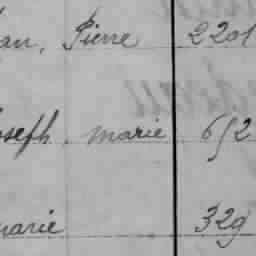 an, Pierre 2201
oseph, marie 652
marie 329